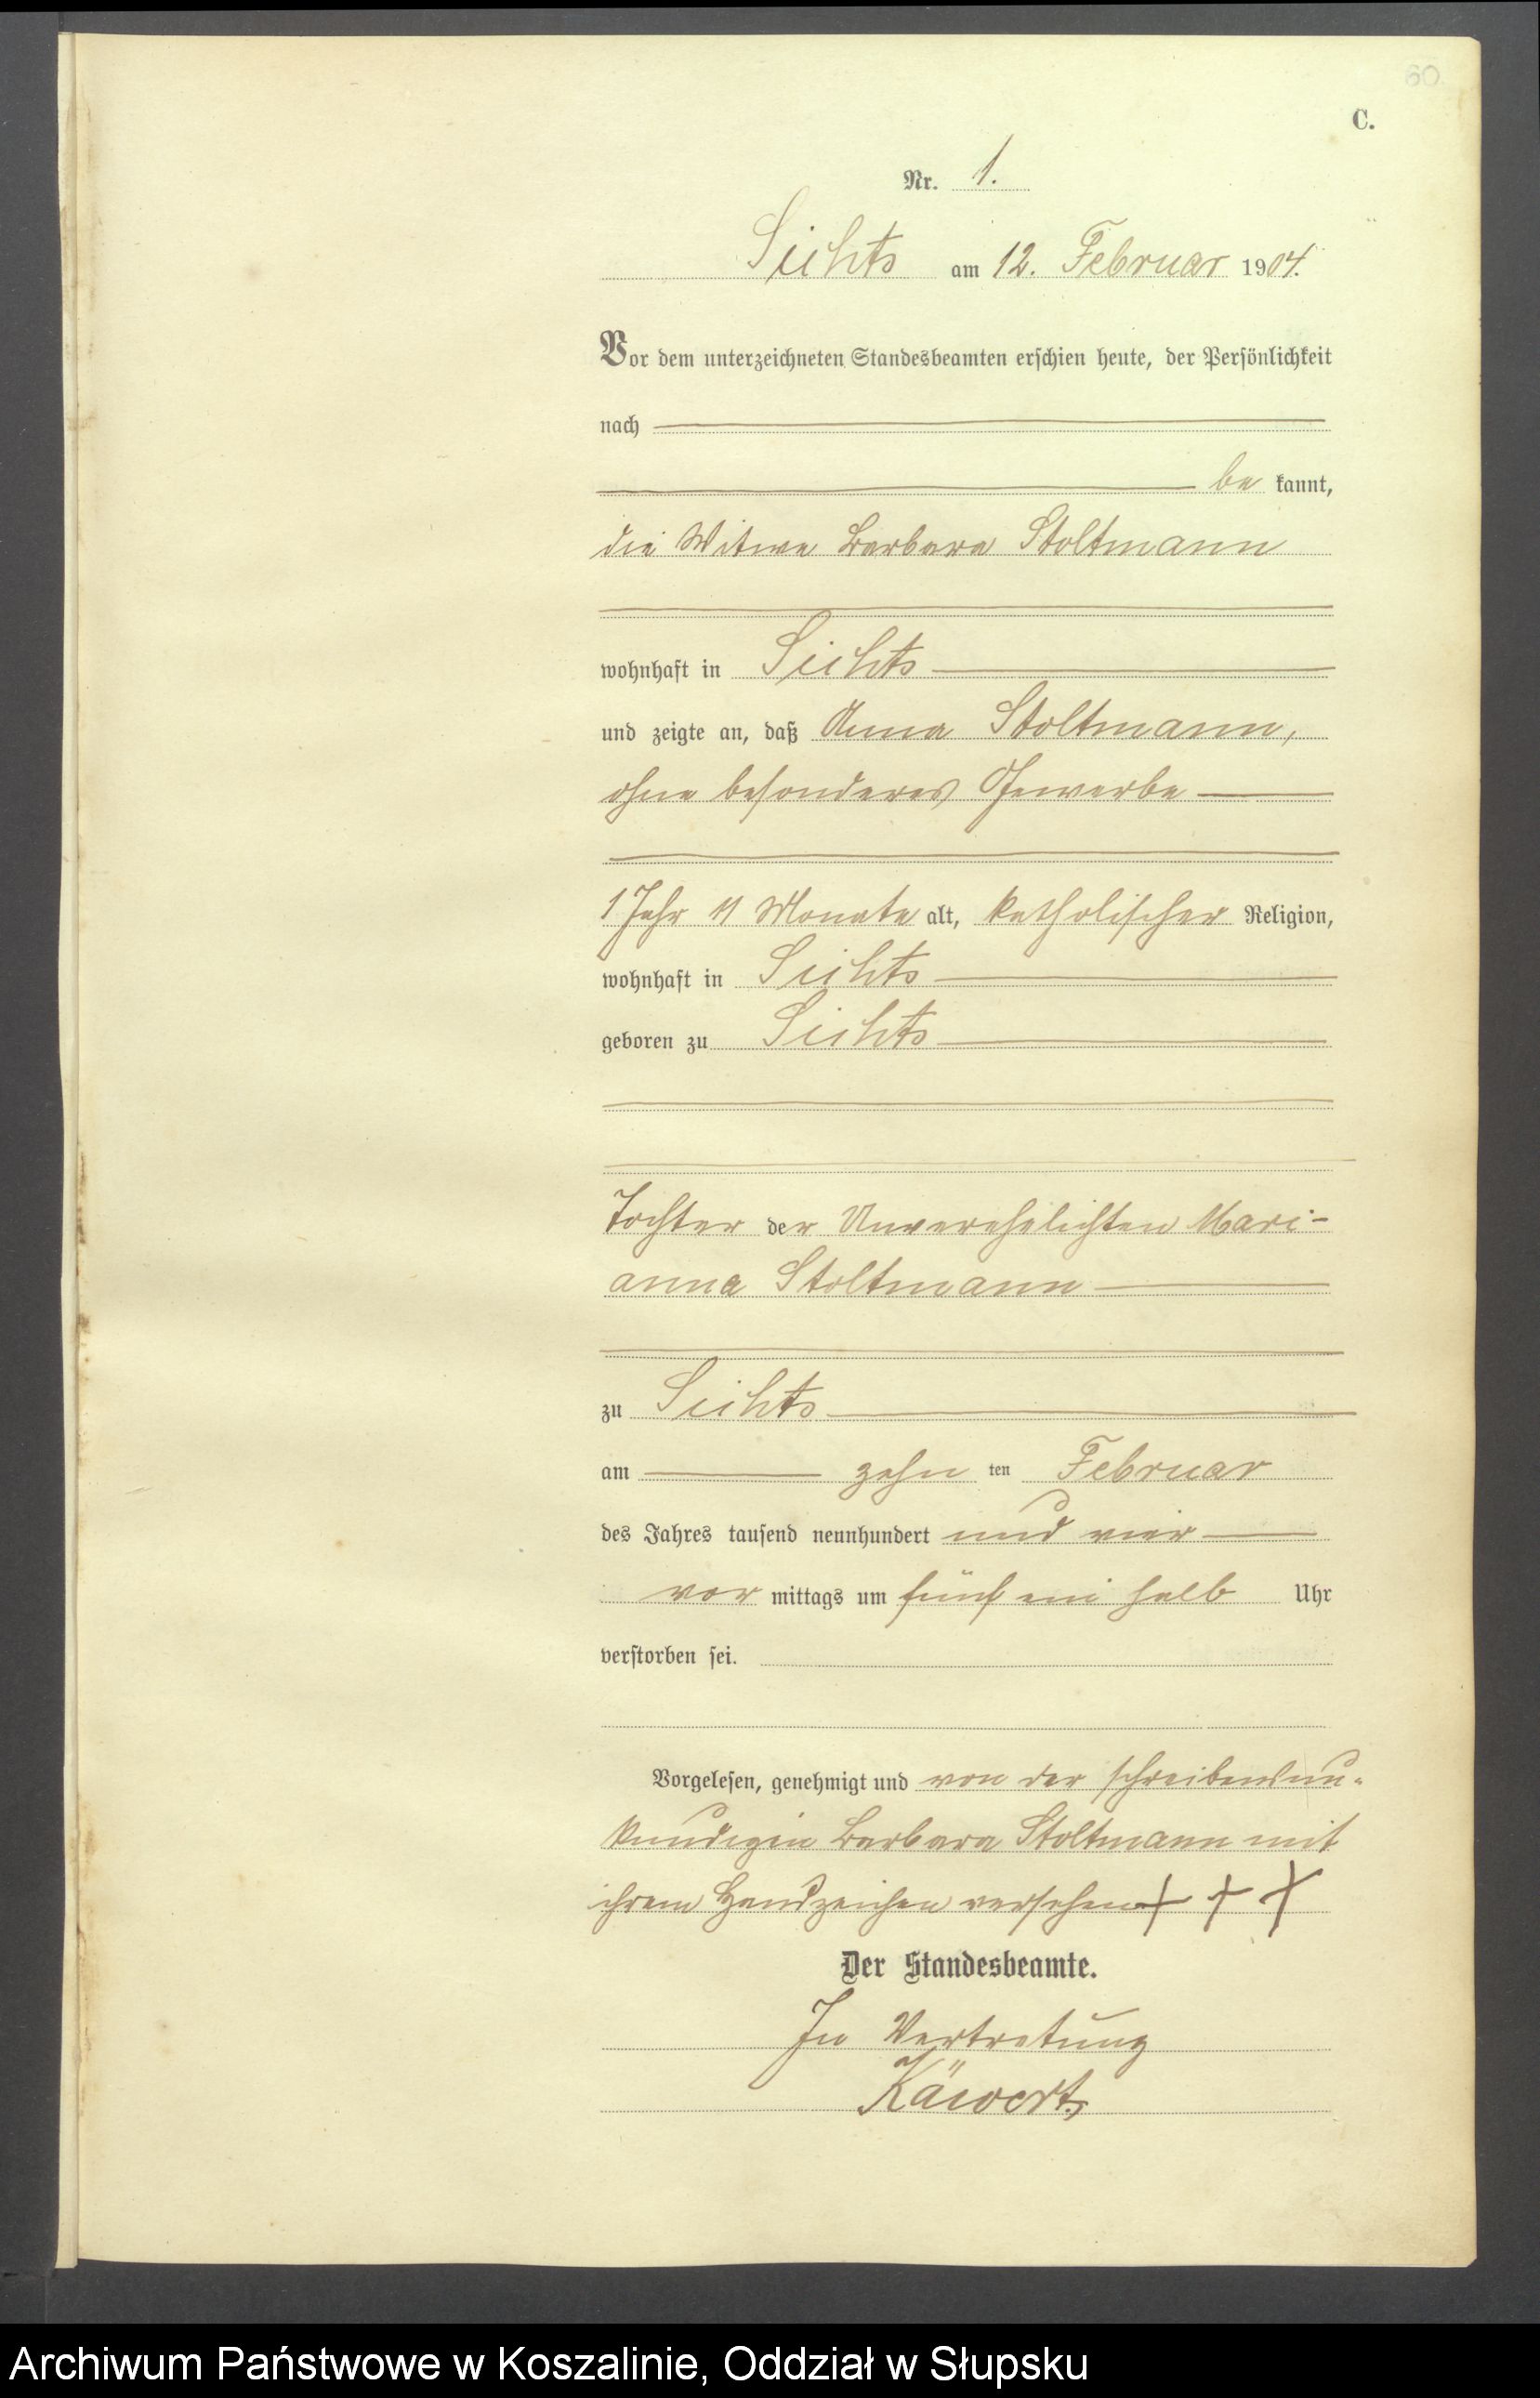 60.
C.
Nr. 1.
Sichts am 12. Februar 1904.
Vor dem unterzeichneten Standesbeamten erschien heute, der Persönlichkeit
nach
be kannt,
die Witwe Barbara Stoltmann
wohnhaft in Sichts
und zeigte an, daß Anna Stoltmann,
ohne besonderes Gewerbe
1 Jahr 11 Monate alt, katholischer Religion,
wohnhaft in Sichts
geboren zu Sichts
Tochter der Unverehelichten Mari-
anna Stoltmann
zu Sichts
am zehn ten Februar
des Jahres tausend neunhundert und vier
vor mittags um fünf ein halb Uhr
verstorben sei.
Vorgelesen, genehmigt und von der schreibensun-
kundigen Barbara Stoltmann mit
ihrem Handzeichen versehen + + +
Der Standesbeamte.
In Vertretung
Archiwum Państwowe w Koszalinie, Oddział w Słupsku